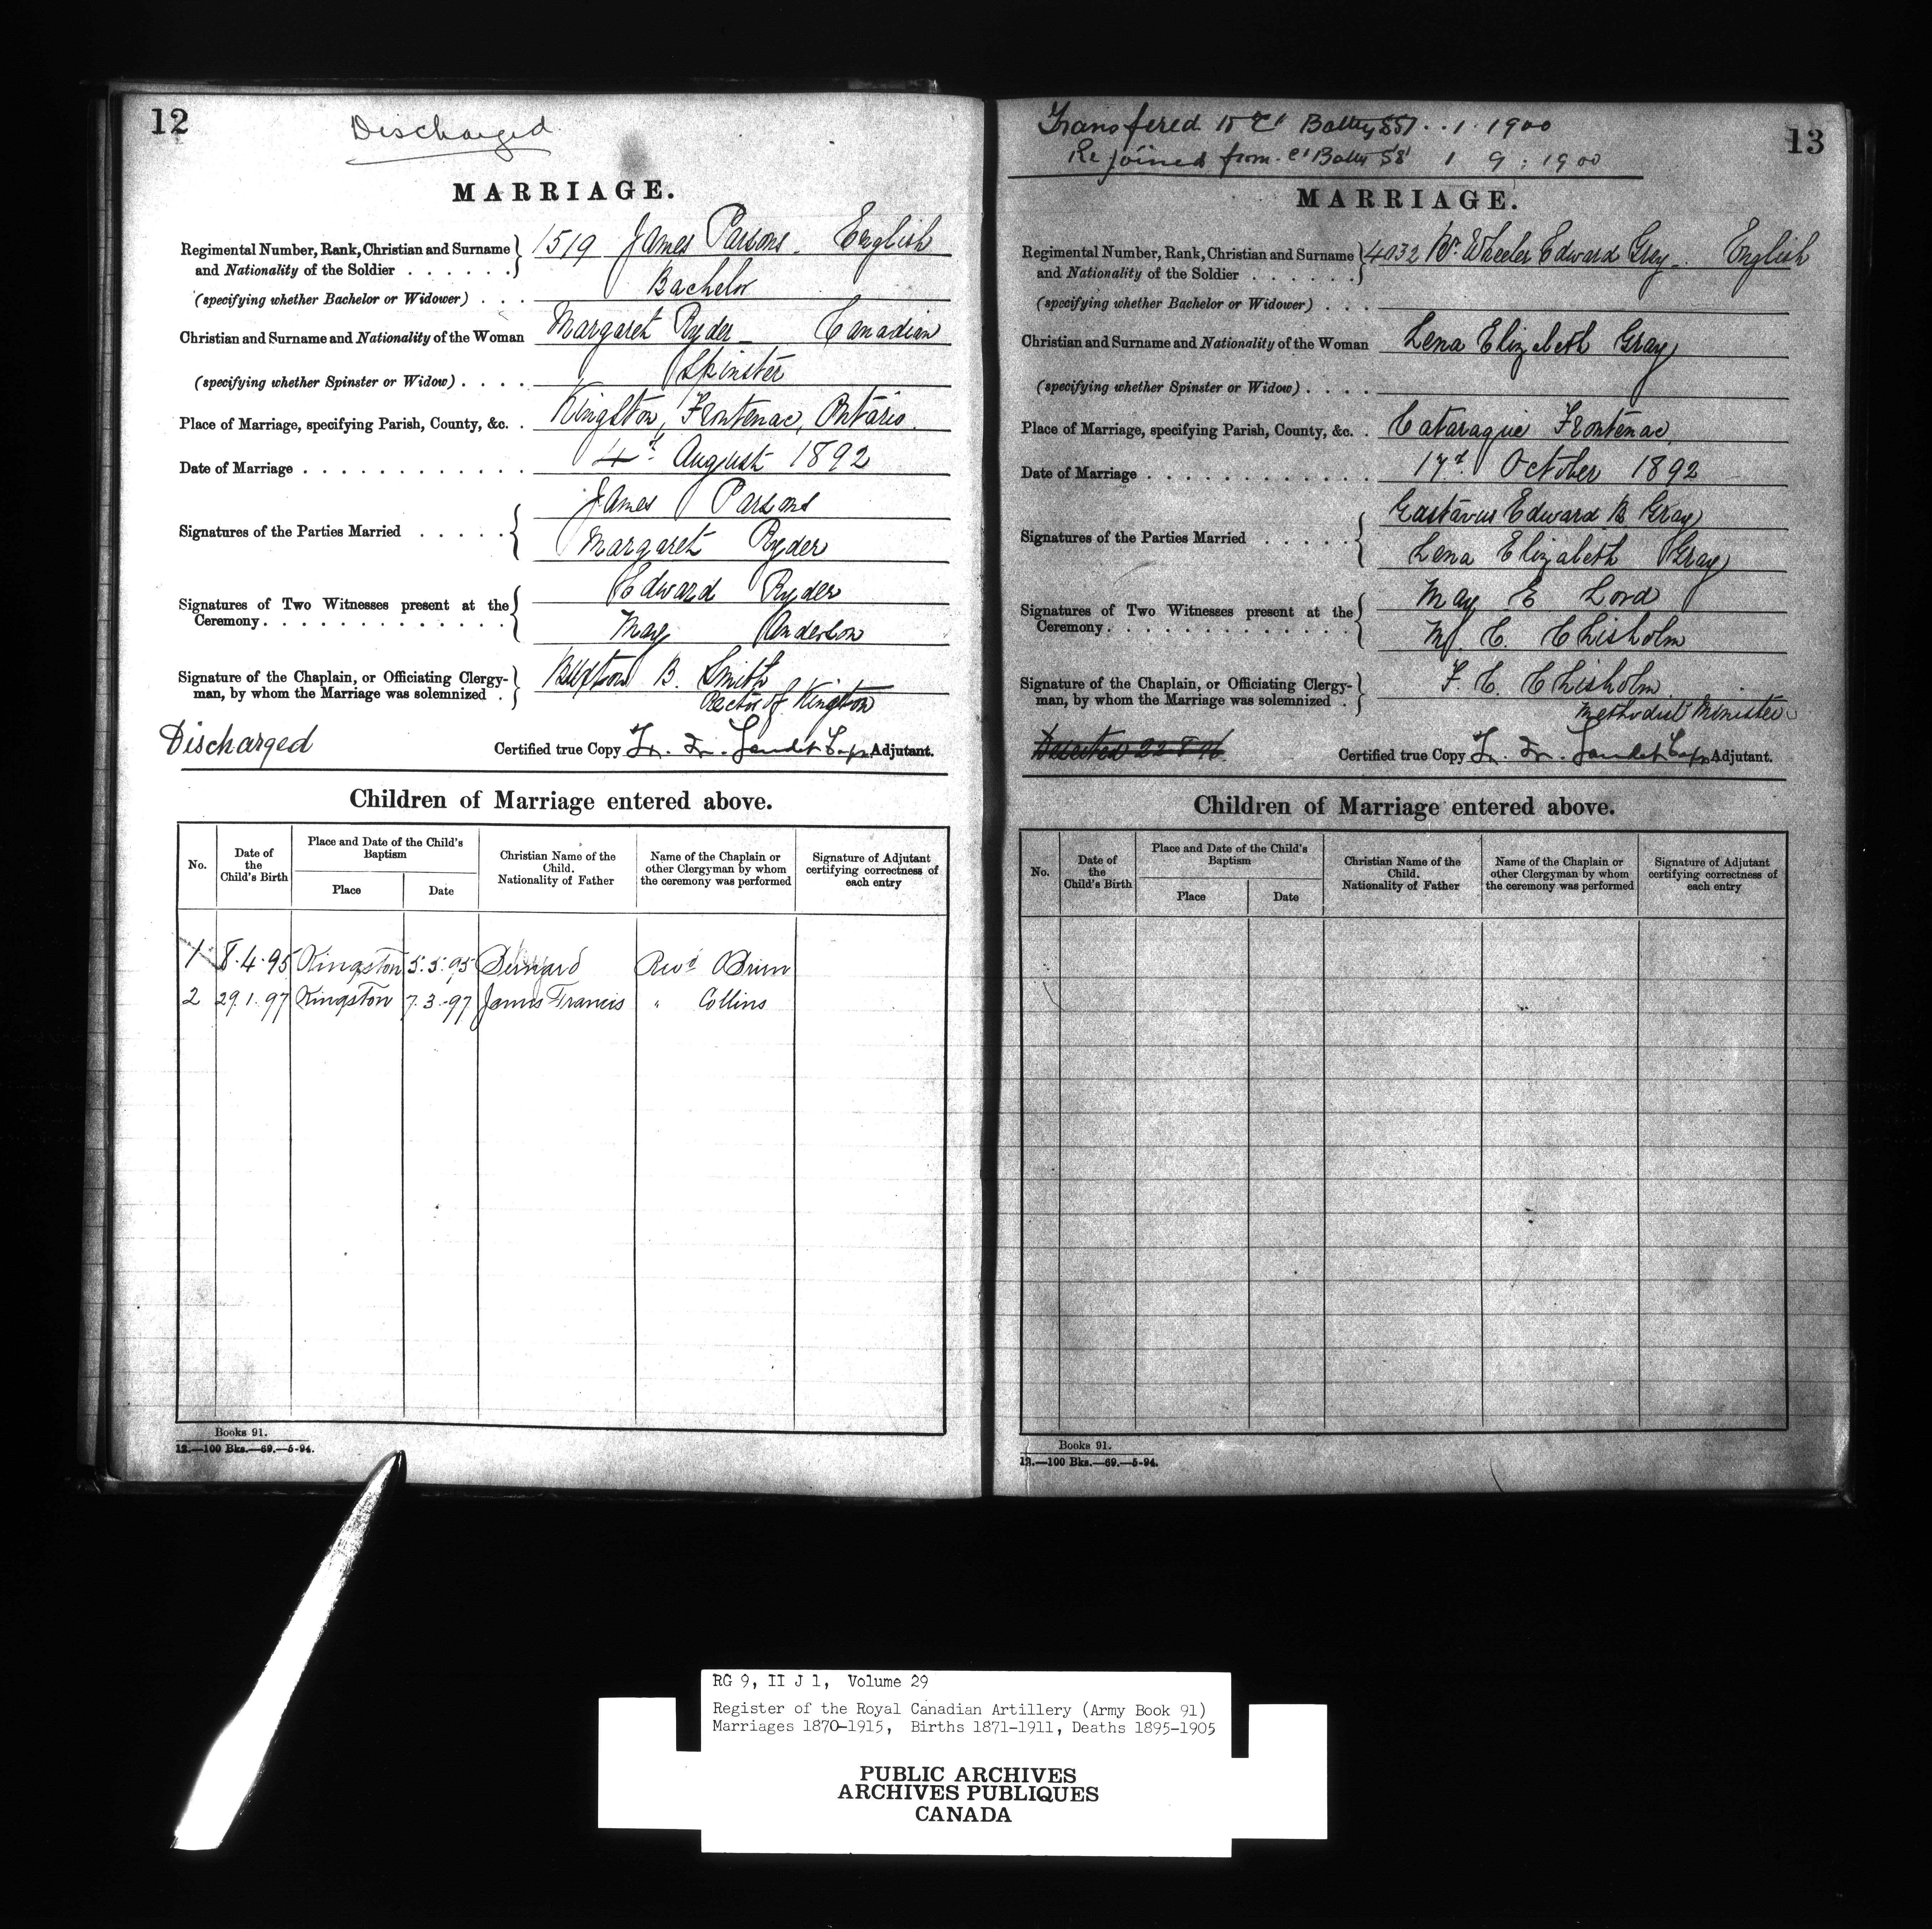 12
Discharged
MARRIAGE.
Regimental Number, Rank, Christian and Surname and Nationality of the Soldier . . . . . . 1519 James Parsons - English
(specifying whether Bachelor or Widower) . . . Bachelor
Christian and Surname and Nationality of the Woman Margaret Ryder - Canadian
(specifying whether Spinster or Widow) . . . . Spinster
Place of Marriage, specifying Parish, County, &c. . Kingston, Frontenac, Ontario.
Date of Marriage . . . . . . . . . . . . 4th August 1892
Signatures of the Parties Married . . . . . James Parsons
Margaret Ryder
Signatures of Two Witnesses present at the Ceremony . . . . . . . . . . . . . Edward Ryder
May Anderson
Signature of the Chaplain, or Officiating Clergyman, by whom the Marriage was solemnized . Buxton B. Smith
Rector of Kingston
Discharged Certified true Copy Adjutant.
Children of Marriage entered above.
No. Date of the Child's Birth Place and Date of the Child's Baptism Place Date Christian Name of the Child. Nationality of Father Name of the Chaplain or other Clergyman by whom the ceremony was performed Signature of Adjutant certifying correctness of each entry
1 8.4.95 Kingston 5.5.95 Bernard Revd OBrien
2 29.1.97 Kingston 7.3.97 James Francis " Collins
Books 91.
12.—100 Bks.—69.—5-94.
Transfered to 'C' Batty 1 . 1900
Rejoined from 'C' Batty 1 9 : 1900
13
MARRIAGE.
Regimental Number, Rank, Christian and Surname and Nationality of the Soldier . . . . . . 4032 Wheeler Edward Gray - English
(specifying whether Bachelor or Widower) . . .
Christian and Surname and Nationality of the Woman Lena Elizabeth Gray
(specifying whether Spinster or Widow) . . . .
Place of Marriage, specifying Parish, County, &c. . Cataraqui Frontenac
Date of Marriage . . . . . . . . . . . . 17th October 1892
Signatures of the Parties Married . . . . . Gustavus Edward B Gray
Lena Elizabeth Gray
Signatures of Two Witnesses present at the Ceremony . . . . . . . . . . . . . May E Lord
M. E. Chisholm
Signature of the Chaplain, or Officiating Clergyman, by whom the Marriage was solemnized . F. C. Chisholm
Methodist Minister
Certified true Copy Adjutant.
Children of Marriage entered above.
No. Date of the Child's Birth Place and Date of the Child's Baptism Place Date Christian Name of the Child. Nationality of Father Name of the Chaplain or other Clergyman by whom the ceremony was performed Signature of Adjutant certifying correctness of each entry
Books 91.
12.—100 Bks.—69.—5-94.
RG 9, II J 1, Volume 29
Register of the Royal Canadian Artillery (Army Book 91)
Marriages 1870-1915, Births 1871-1911, Deaths 1895-1905
PUBLIC ARCHIVES
ARCHIVES PUBLIQUES
CANADA